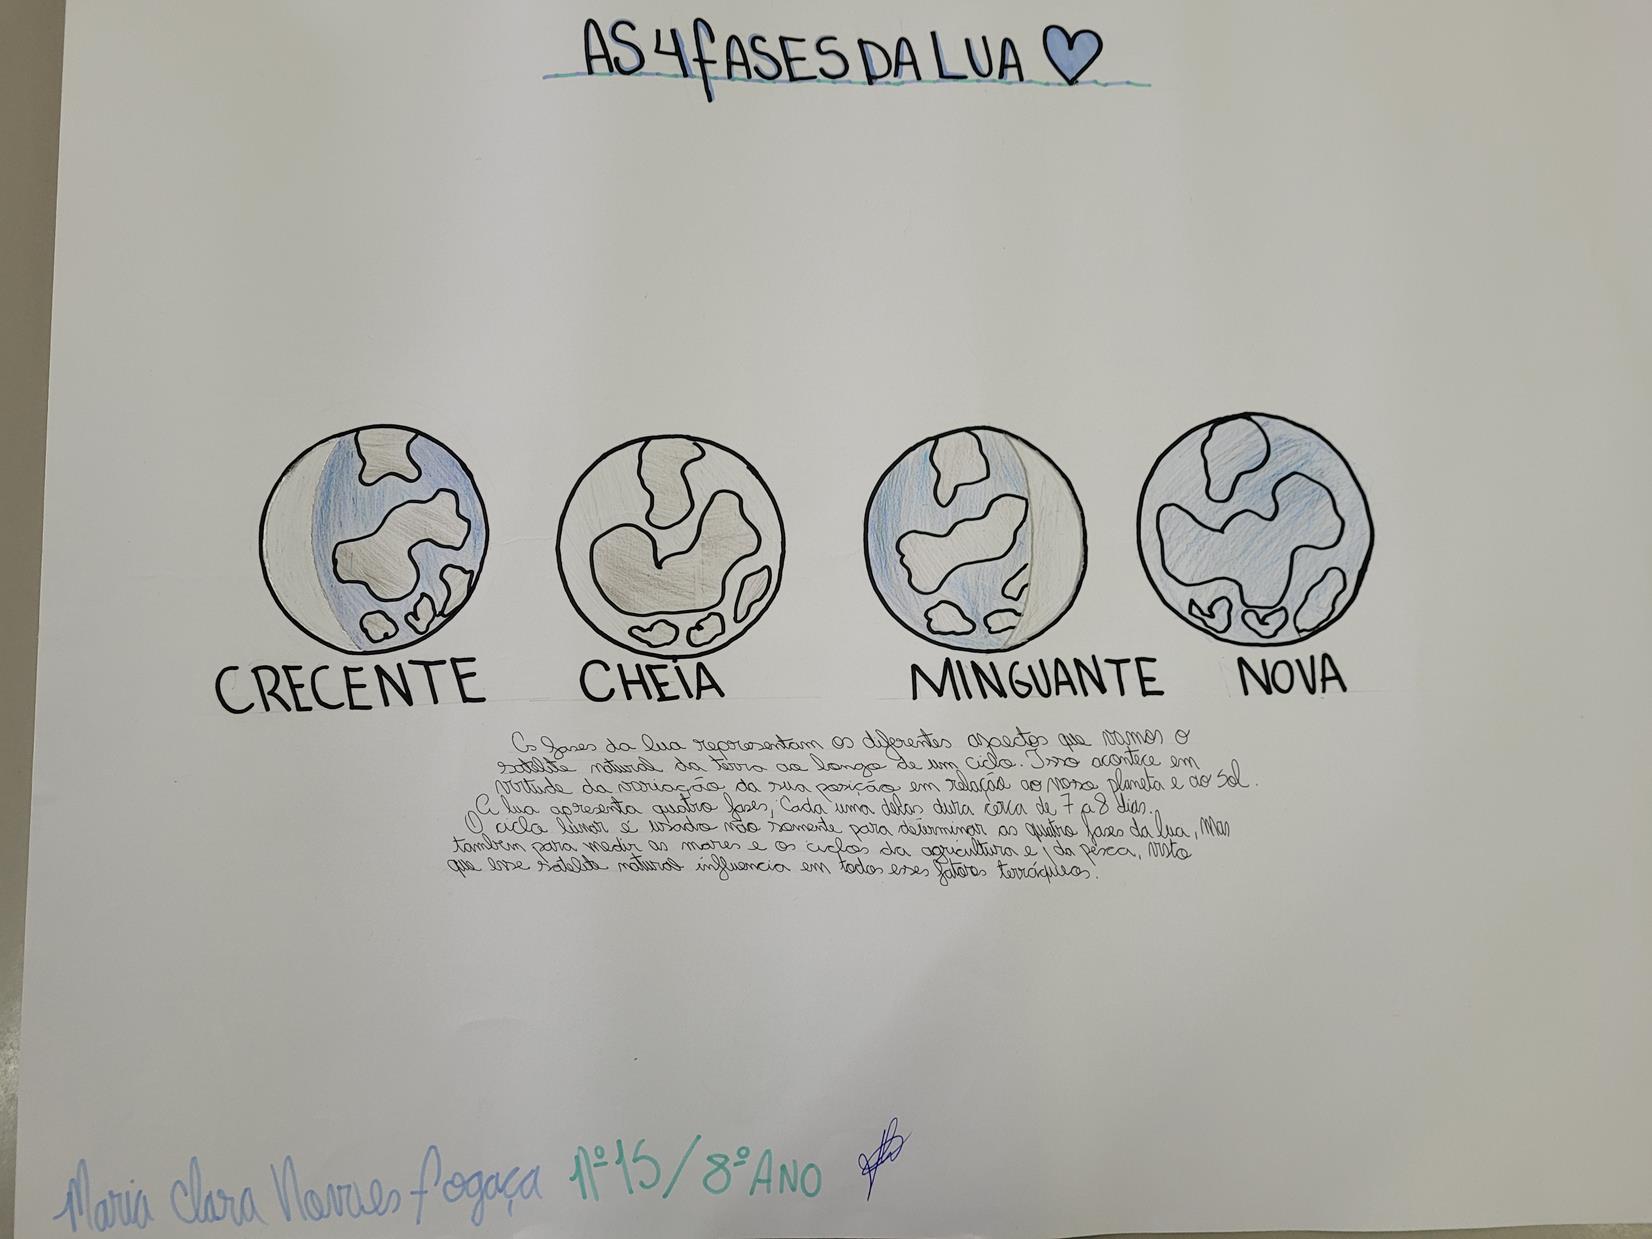 AS 4 fASES DA LUA
CRECENTE CHEIA MINGUANTE NOVA
As fases da lua representam os diferentes aspectos que vamos o
satélite natural da terra ao longo de um ciclo. Isso acontece em
virtude da variação da sua posição em relação ao nosso planeta e ao sol.
A lua apresenta quatro fases, Cada uma delas dura cerca de 7 a 8 dias.
O ciclo lunar é usado não somente para determinar as quatro fases da lua, mas
também para medir as mares e os ciclos da agricultura e, da pesca, visto
que esse satélite natural influencia em todos esses fatores terráqueos.
Maria Clara fogaça Nº15/8ºANO